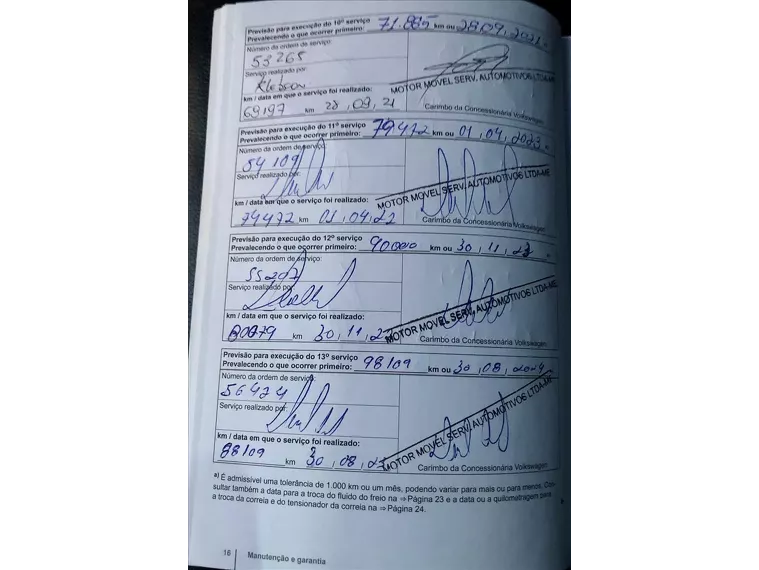 Previsão para execução do 10º serviço
Prevalecendo o que ocorrer primeiro: 71.885 km ou 28.09.2021
Número da ordem de serviço:
53265
Serviço realizado por:
Klebson
km / data em que o serviço foi realizado:
69197 km 28,09,21
MOTOR MOVEL SERV. AUTOMOTIVOS LTDA-ME
Carimbo da Concessionária Volkswagen
Previsão para execução do 11º serviço
Prevalecendo o que ocorrer primeiro: 79472 km ou 01,04,2023
Número da ordem de serviço:
54109
Serviço realizado por:
km / data em que o serviço foi realizado:
74472 km 01,04,22
MOTOR MOVEL SERV. AUTOMOTIVOS LTDA-ME
Carimbo da Concessionária Volkswagen
Previsão para execução do 12º serviço
Prevalecendo o que ocorrer primeiro: 90000 km ou 30,11,23
Número da ordem de serviço:
55297
Serviço realizado por:
km / data em que o serviço foi realizado:
80079 km 30,11,
MOTOR MOVEL SERV. AUTOMOTIVOS LTDA-ME
Carimbo da Concessionária Volkswagen
Previsão para execução do 13º serviço
Prevalecendo o que ocorrer primeiro: 98109 km ou 30,08,2024
Número da ordem de serviço:
56424
Serviço realizado por:
km / data em que o serviço foi realizado:
88109 km 30,08,23
MOTOR MOVEL SERV. AUTOMOTIVOS LTDA-ME
Carimbo da Concessionária Volkswagen
a) É admissível uma tolerância de 1.000 km ou um mês, podendo variar para mais ou para menos. Con-
sultar também a data para a troca do fluido do freio na ⇒ Página 23 e a data ou a quilometragem para
a troca da correia e do tensionador da correia na ⇒ Página 24.
16 Manutenção e garantia